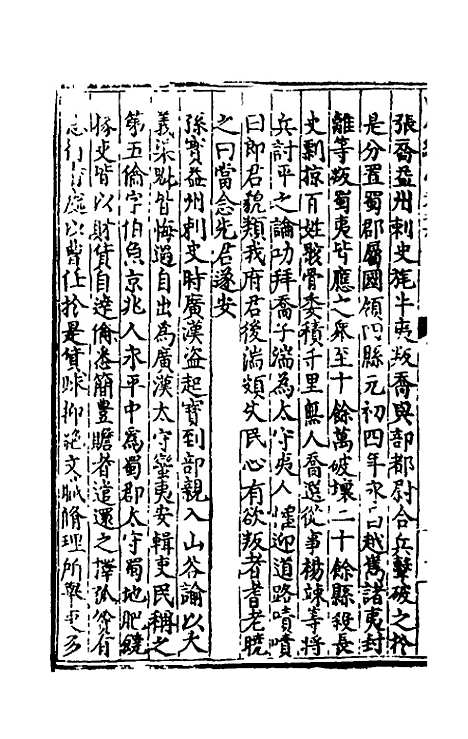 張喬益州刺史旄牛夷叛喬與部都尉合兵擊破之於
是分置蜀郡屬國領四縣元初四年永昌越嶲諸夷封
離等叛蜀夷皆應之眾至十餘萬破壞二十餘縣殺長
吏剽掠百姓骸骨委積千里無人喬選從事楊竦等將
兵討平之論功拜喬子湍為太守夷人懽迎道路嘖嘖
曰郎君貌類我府君後湍頗失民心有欲叛者耆老曉
之曰當念先君遂安
孫寶益州刺史時廣漢盜起寶到部親入山谷諭以大
義渠黠皆悔過自出為廣漢太守蠻夷安輯吏民稱之
第五倫字伯魚京兆人永平中為蜀郡太守蜀地肥饒
掾史皆以財貨自達倫悉簡豐贍者遣還之擇孤貧有
志行者處以曹任於是貨賕抑絕文職脩理所舉吏多